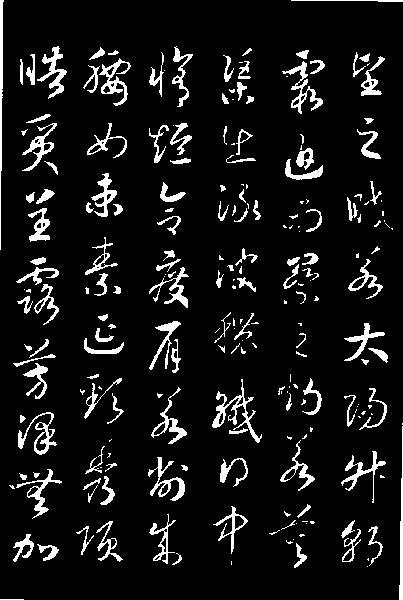 望之皎若太陽升朝
霞迫而察之灼若芙
蕖出淥波穠纖得中
脩短合度肩若削成
腰如束素延頸秀項
皓質呈露芳澤無加